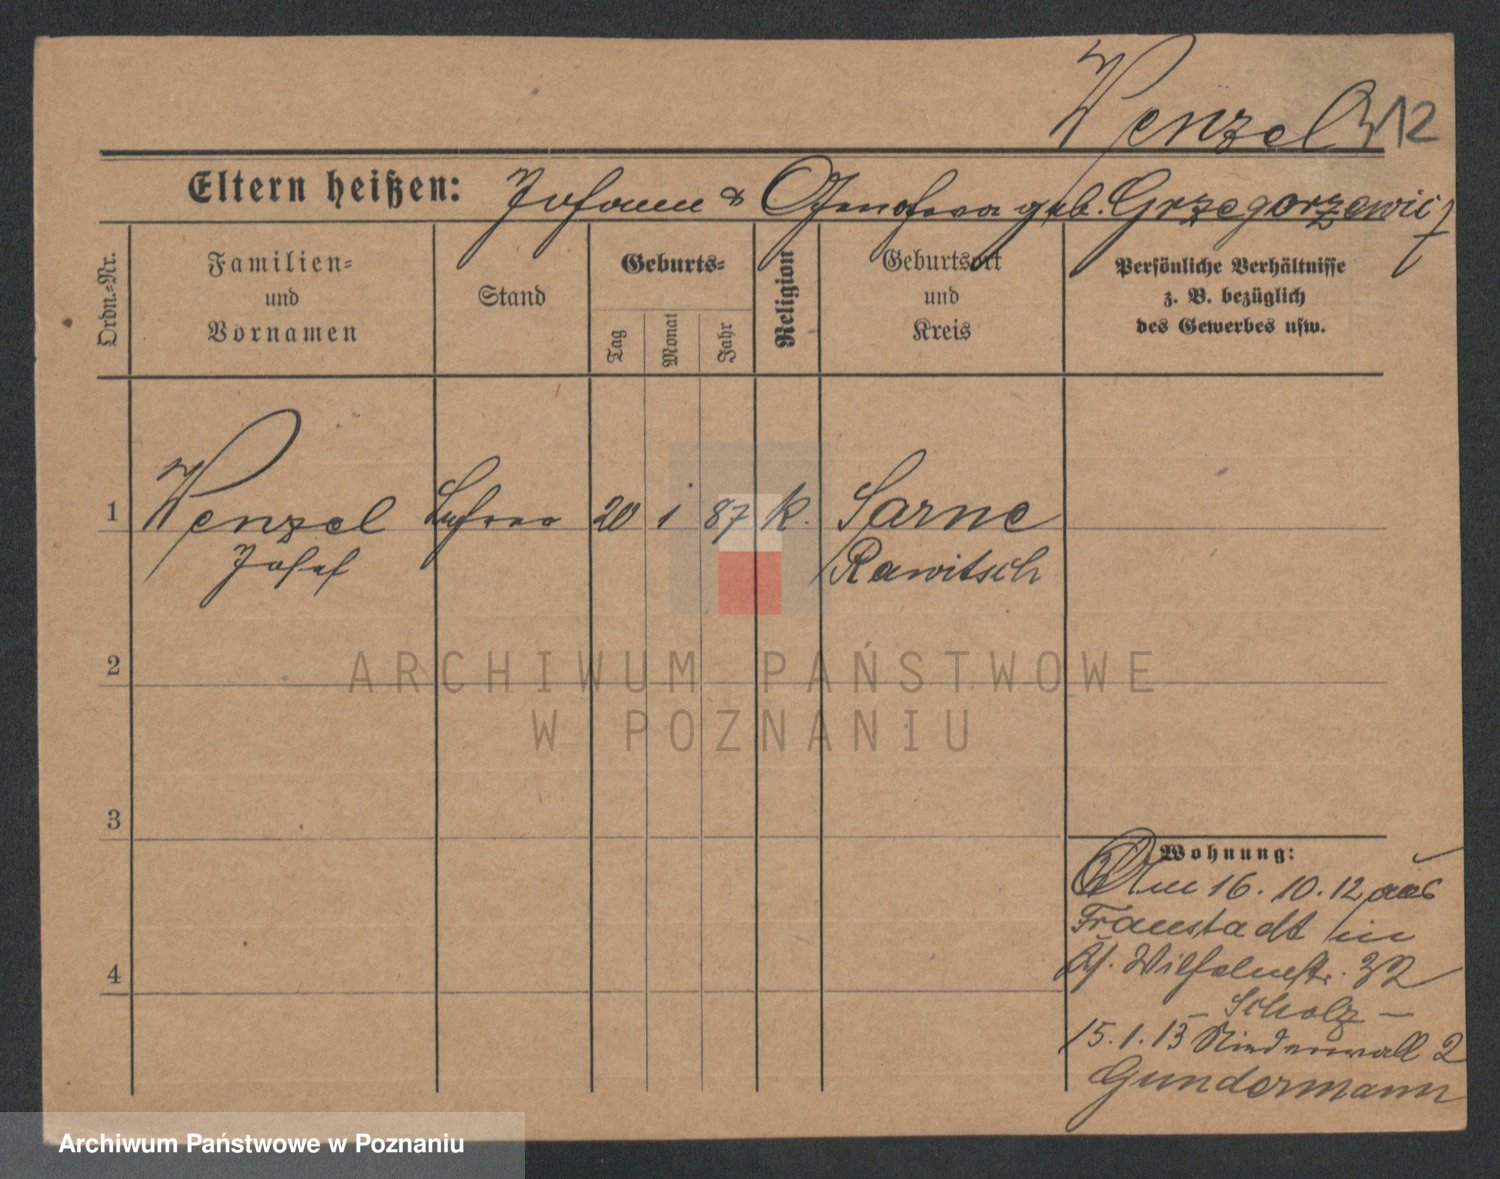 Wenzel 312
Eltern heißen: Johann & Genofeva geb. Grzegorzewicz
Ordn.-Nr.
Familien-
und
Vornamen
Stand
Geburts-
Tag
Monat
Jahr
Religion
Geburtsort
und
Kreis
Persönliche Verhältnisse
z. B. bezüglich
des Gewerbes usw.
1 Wenzel Lehrer 20 1 87 k. Sarne
Josef Rawitsch
2
ARCHIWUM PAŃSTWOWE
W POZNANIU
3
Wohnung:
Am 16.10.12 aus
Fraustadt in
Wilhelmstr. 32
- Scholz -
15.1.13 Niederwall 2
Gundermann
4
Archiwum Państwowe w Poznaniu